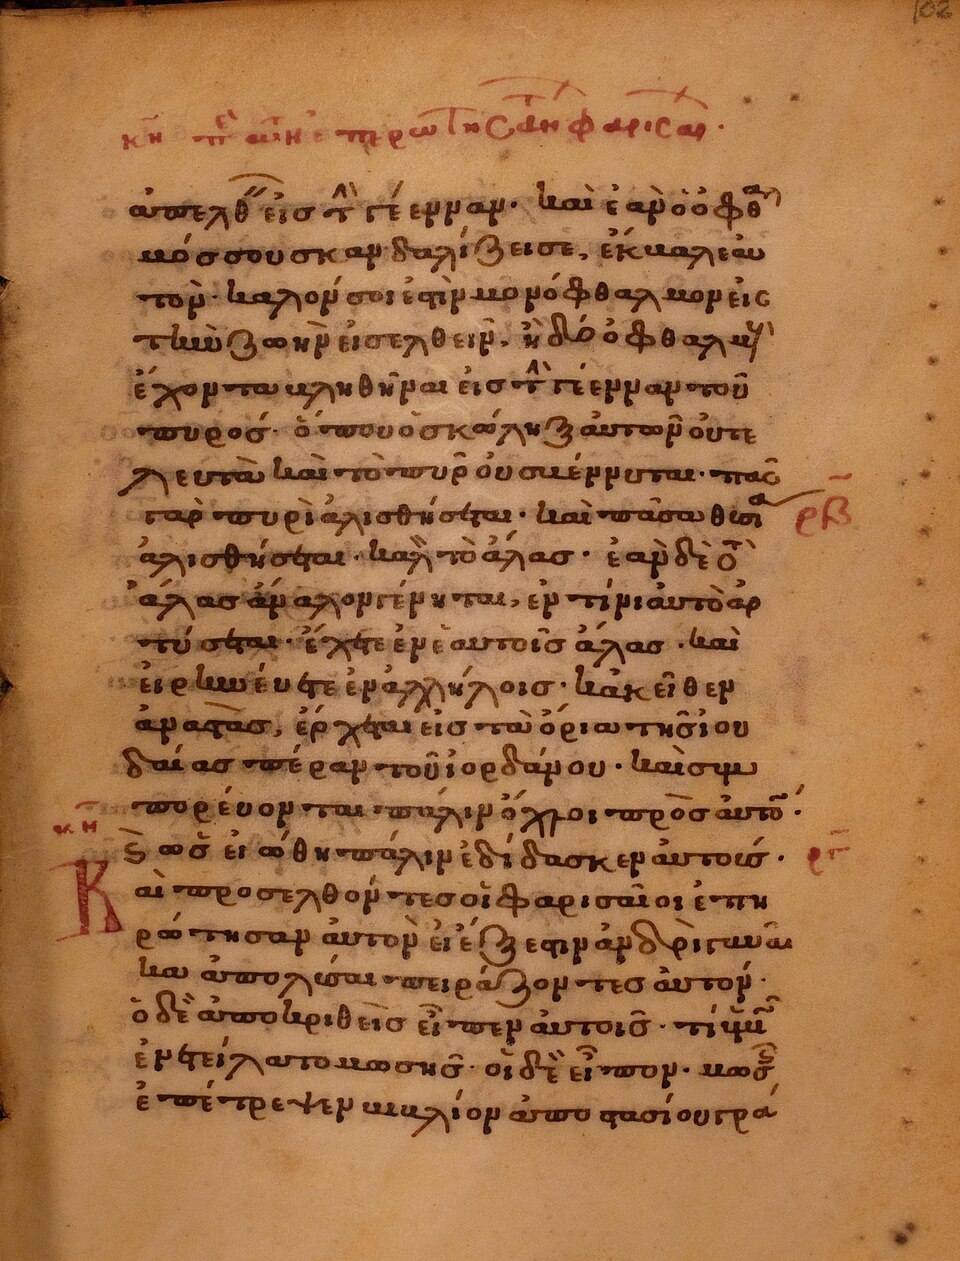 102
κη π τῶν ἐπερωτησάντ φαρισαί·
ἀπελθ εἰς τ γέενναν· καὶ ἐὰν ὁ ὀφθα
μός σου σκανδαλίζει σε, ἔκβαλε αὐ
τὸν· καλόν σοι ἐστὶν μονόφθαλμον εἰς
τὴν ζωὴν εἰσελθεῖν, ἢ δύο ὀφθαλμ
ἔχοντα βληθῆναι εἰς τ γέενναν τοῦ
πυρός· ὅπου ὁ σκώληξ αὐτῶν οὐ τε
λευτᾶ καὶ τὸ πῦρ οὐ σβέννυται· πᾶς
γὰρ πυρὶ ἁλισθήσεται· καὶ πᾶσα θυσία
ρβ
ἁλισθήσεται· καλὸν τὸ ἅλας· ἐὰν δὲ τὸ
ἅλας ἄναλον γένηται, ἐν τίνι αὐτὸ ἀρ
τύσεται· ἔχετε ἐν ἑαυτοῖς ἅλας· καὶ
εἰρηνεύετε ἐν ἀλλήλοις· κἀκεῖθεν
ἀναστὰς, ἔρχεται εἰς τὰ ὅρια τῆς ἰου
δαίας πέραν τοῦ ἰορδάνου· καὶ συμ
πορεύονται πάλιν ὄχλοι πρὸς αὐτὸ·
κη
ϗ ὡς εἰώθη πάλιν ἐδίδασκεν αὐτούς·
ργ
Καὶ προσελθόντες οἱ φαρισαῖοι ἐπη
ρώτησαν αὐτὸν εἰ ἔξεστιν ἀνδρὶ γυναῖ
κα ἀπολῦσαι πειράζοντες αὐτόν·
ὁ δὲ ἀποκριθεὶς εἶπεν αὐτοῖς· τί ὑμῖ
ἐνετείλατο μωσῆς· οἱ δὲ εἶπον· μωσῆς
ἐπέτρεψεν βιβλίον ἀποστασίου γρά